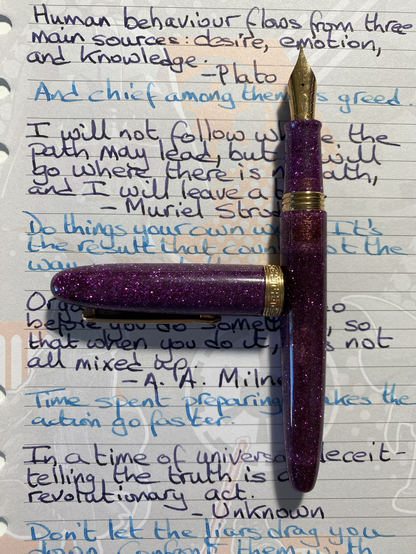 Human behaviour flows from three
main sources: desire, emotion,
and knowledge.
-Plato
And chief among them is greed.
I will not follow where the
path may lead, but I will
go where there is no path,
and I will leave a
- Muriel
Do things your own It's
the result that not the
way
before you do so
that when you do it, is not
all mixed up.
-A. A. Milne
Time spent preparing makes the
action go faster.
In a time of universal deceit-
telling the truth is a
revolutionary act.
- Unknown
Don't let the liars drag you
down. them with